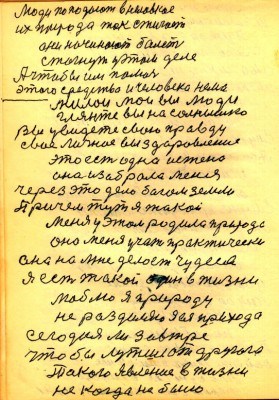 Люди попадают виновное
их природа так стигает
они начинают балет
стогнут у этом деле
А чтобы им помоч
этого средства и человека нема
милои мои вы люди
гляньте вы на солнышко
Вы увидете свою правду
свое личное выздаровление
это ест одна истена
она избрала меня
через это дело багом земли
Причем тут я такой
меня у этом родила природа
оно меня учит практически
она на мне делает чудеса
я ест такой один в жизни
люблю я природу
не разделяю я ея прихода
сегодня ли завтре
что бы лутше ст другога
такого явление в жизни
не когда не было